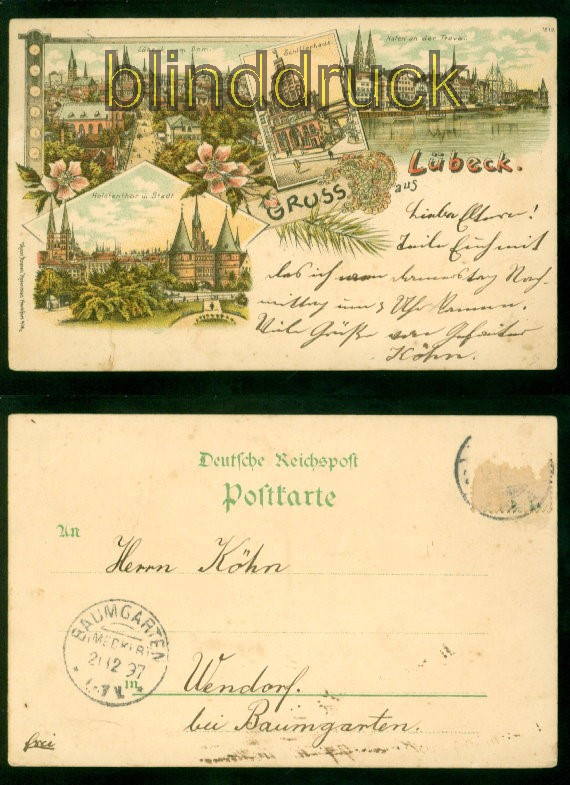 blinddruck
1819.
Lübeck vom Dom.
Schifferhaus.
Hafen an der Trave.
Lübeck.
GRUSS aus
Holstenthor u. Stadt
Liebe Eltern!
Teile Euch mit
das ich Donnerstag Nach-
mittag um 3 Uhr komme.
Viele Grüße von Gefreiter
Köhn.
Deutsche Reichspost
Postkarte
An
Herrn Köhn
BAUMGARTEN
(MECKLB)
21 12 97
in
Wendorf.
bei Baumgarten.
frei